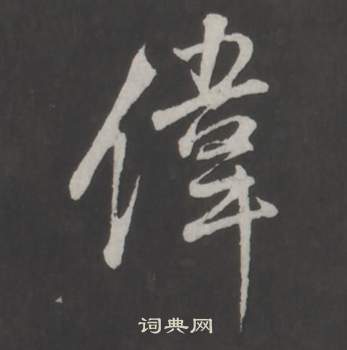 偉
词典网